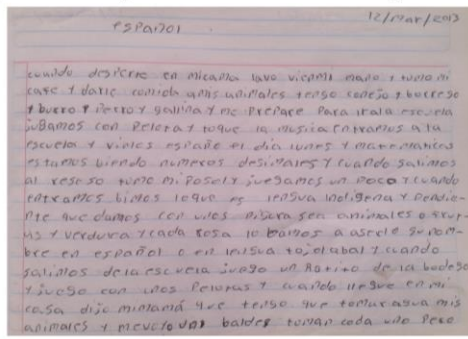 12/Mar/2013
español
cuando despierte en micama lavo vienmi mano y tomo mi
cafe y darle comida amis animales tengo conejo y borrego
y burro y perro y gallina y me prepare para irala escuela
jugamos con Pelota y toque la musica entramos a la
escuela y vimos españo el dia lunes y matematicas
estamos biendo numeros desimales y cuando salimos
al reseso tome mi posol y juegamos un poco y cuando
entramos bimos loque es lengua indigena y Pendie-
nte que damos con unos sea animales o fru-
tas y verdura y cada cosa lo bamos a aserle su nom-
bre en español o en lengua tojolabal y cuando
salimos de la escuela juego un Ratito de la bodega
y juego con unos Pelotas y cuando llegue en mi
casa dijo mimamá que tengo que tomar agua mis
animales y un baldes toman cada uno Pero